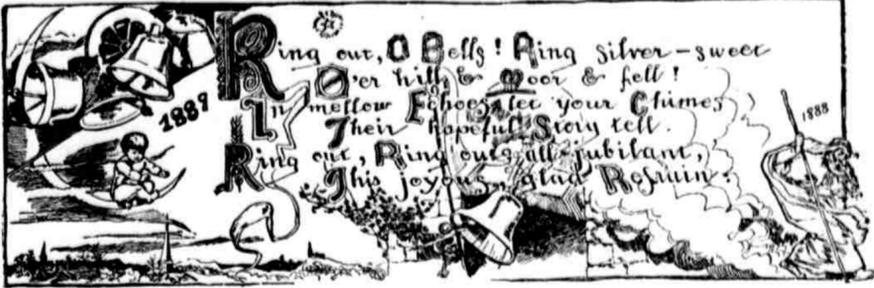 Ring out, O Bells! Ring silver-sweet
O'er hill & Moor & fell!
In mellow Echoes let your Chimes
Their hopeful Story tell.
Ring out, Ring out, all jubilant,
This joyous, glad Refrain:
1889
1888